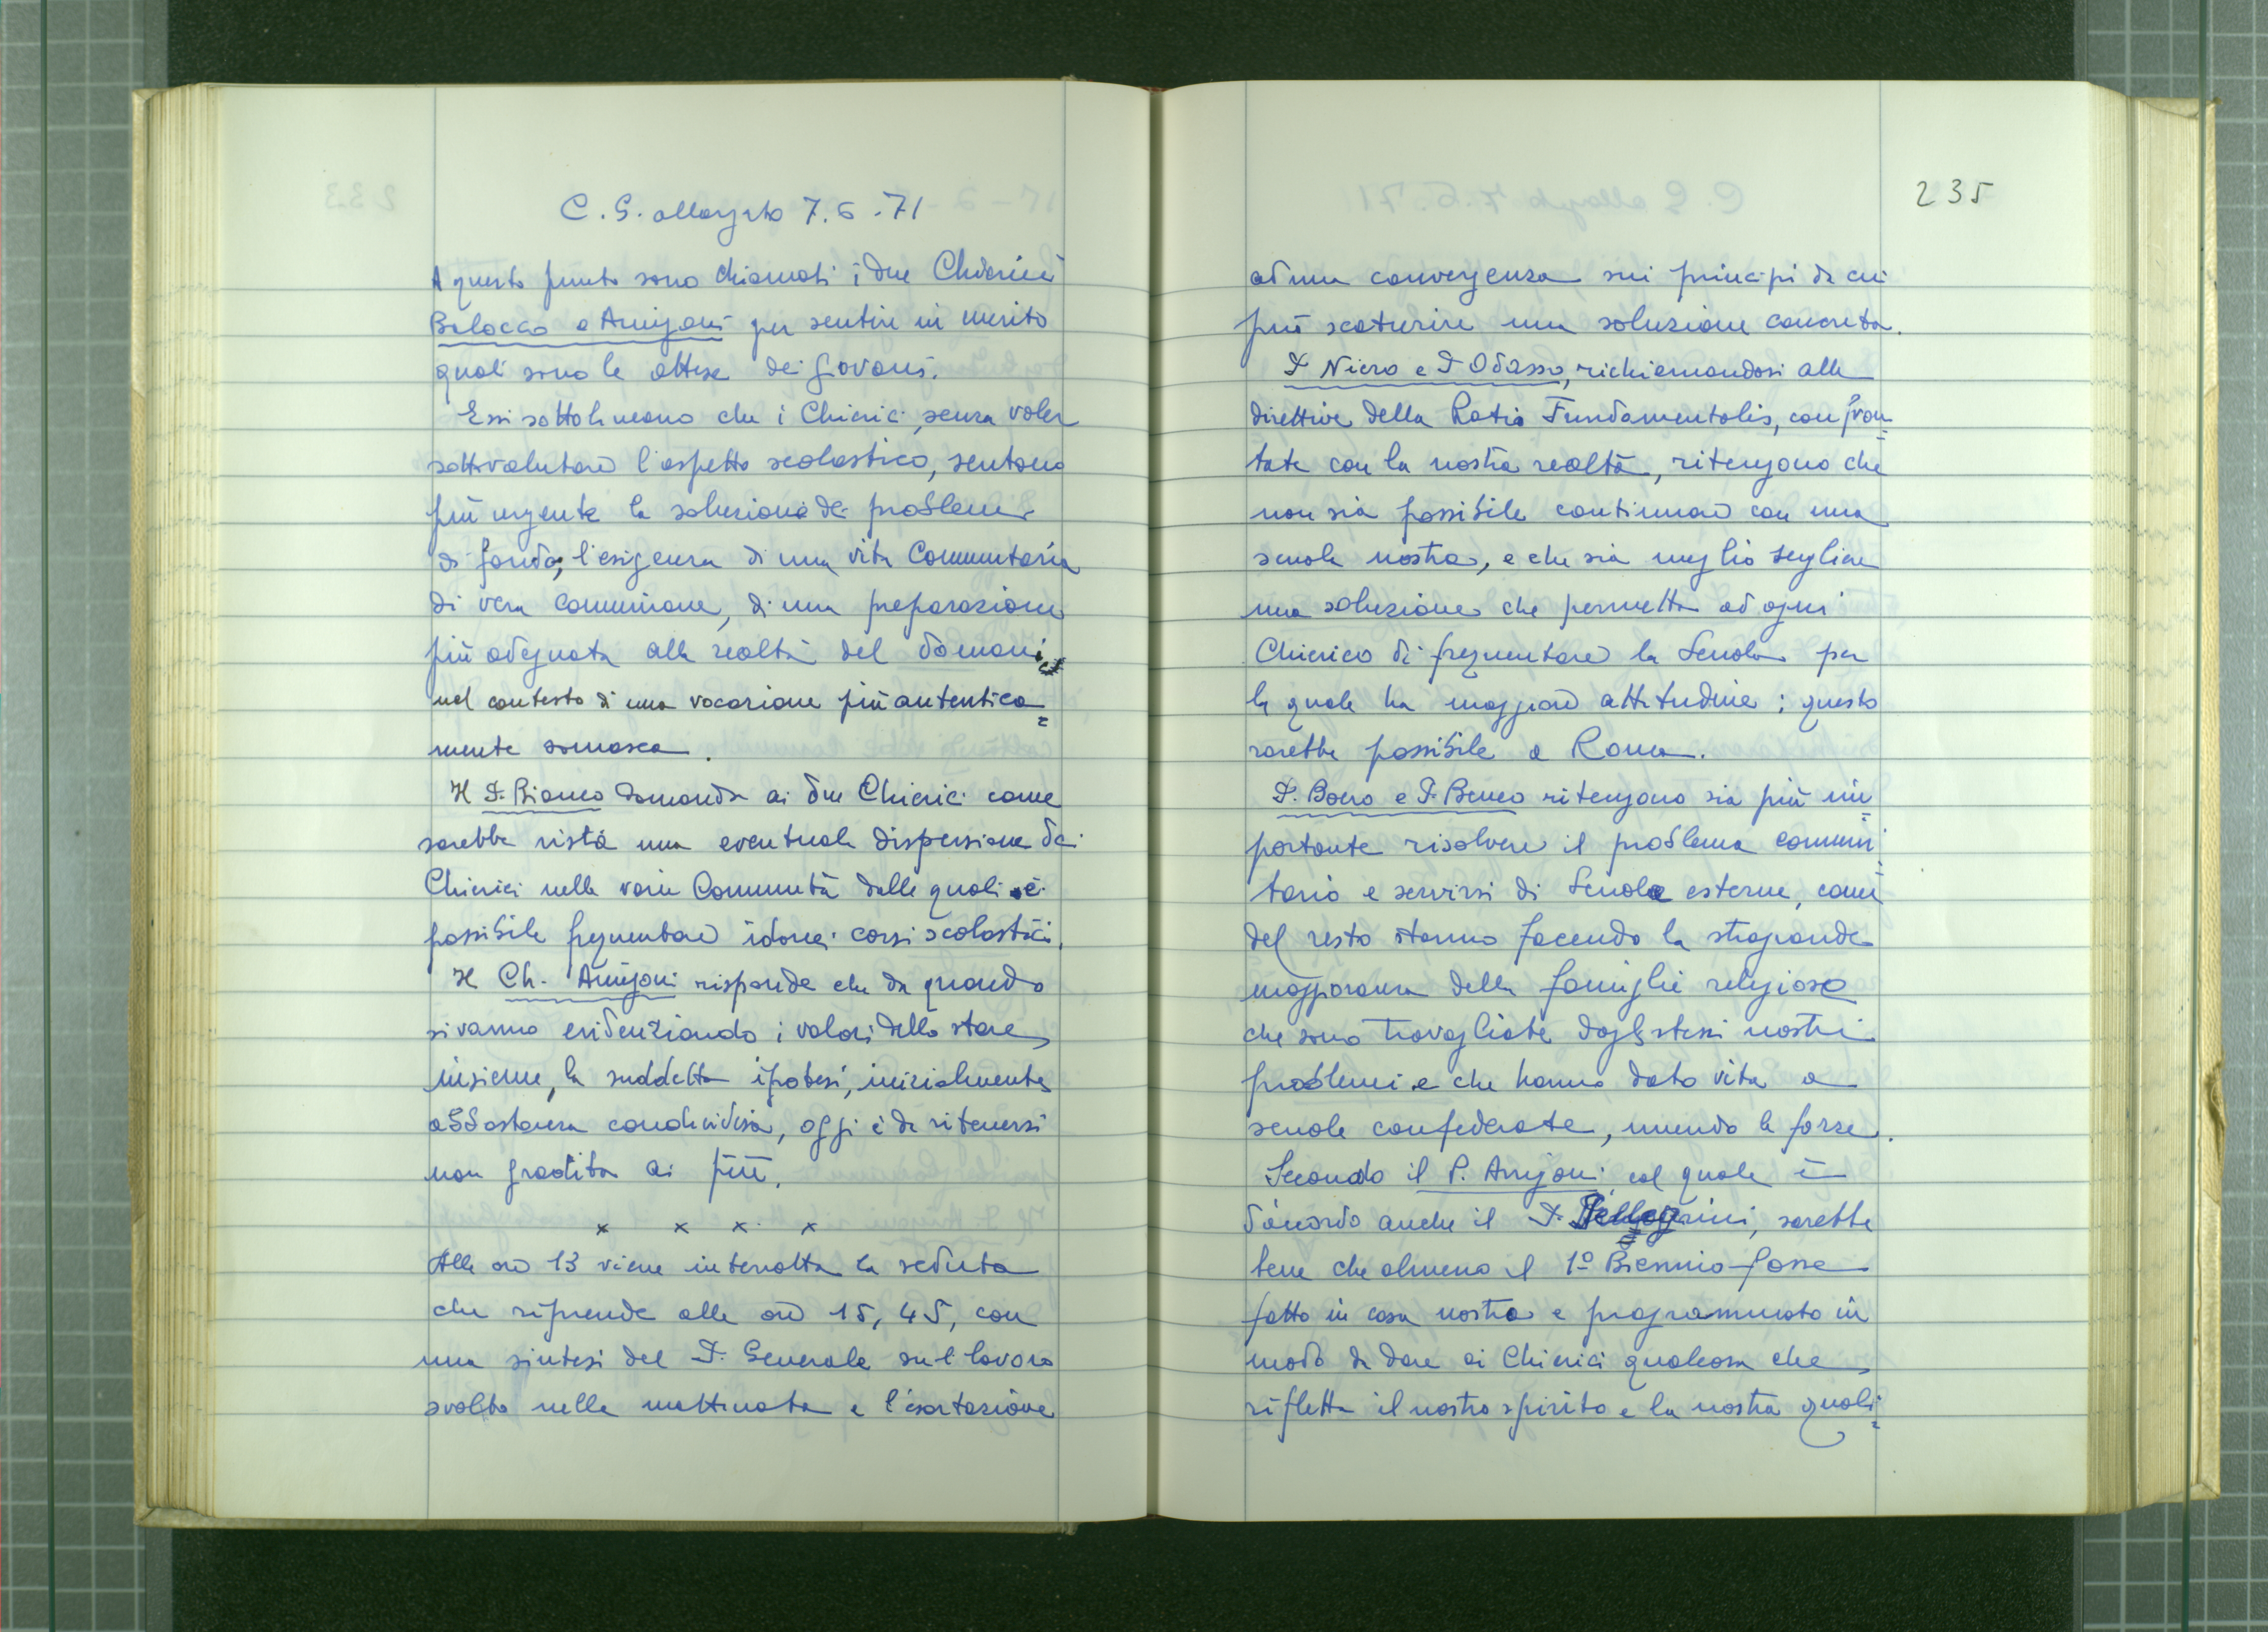 C.G. allargato 7.6.71
A questo punto sono chiamati i due Chierici
Balocco e Amigoni per sentire in merito
quali sono le attese dei giovani.
Essi sottolineano che i Chierici, senza voler
sottovalutare l'aspetto scolastico, sentono
più urgente la soluzione dei problemi
di fondo; l'esigenza di una vita Comunitaria
di vera comunione, di una preparazione
più adeguata alla realtà del domani,
nel contesto di una vocazione più autentica=
mente somasca.
Il P. Bianco domanda ai due Chierici come
sarebbe vista una eventuale dispersione dei
Chierici nelle varie Comunità dalle quali è
possibile frequentare idonei corsi scolastici.
Il Ch. Amigoni risponde che da quando
si vanno evidenziando i valori dello stare
insieme, la suddetta ipotesi, inizialmente
abbastanza condivisa, oggi è da ritenersi
non gradita ai più.
x x x x
Alle ore 13 viene interrotta la seduta
che riprende alle ore 15,45, con
una sintesi del P. Generale sul lavoro
svolto nella mattinata e l'esortazione
235
ad una convergenza sui principi da cui
può scaturire una soluzione concreta.
P Niero e P Odasso, richiamandosi alle
direttive della Ratio Fundamentalis, confron=
tate con la nostra realtà, ritengono che
non sia possibile continuare con una
scuola nostra, e che sia meglio scegliere
una soluzione che permetta ad ogni
Chierico di frequentare la Scuola per
la quale ha maggiore attitudine; questo
sarebbe possibile a Roma.
P. Boero e P. Beneo ritengono sia più im=
portante risolvere il problema comuni=
tario e servirsi di Scuole esterne, come
del resto stanno facendo la stragrande
maggioranza delle famiglie religiose
che sono travagliate dagli stessi nostri
problemi e che hanno dato vita a
scuole confederate, unendo le forze.
Secondo il P. Amigoni col quale è
d'accordo anche il P. Pellegrini, sarebbe
bene che almeno il 1º Biennio fosse
fatto in casa nostra e programmato in
modo da dare ai Chierici qualcosa che
rifletta il nostro spirito e la nostra quali=